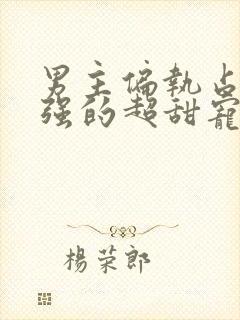 男主偏執占
强的超甜寵
楊荣郎